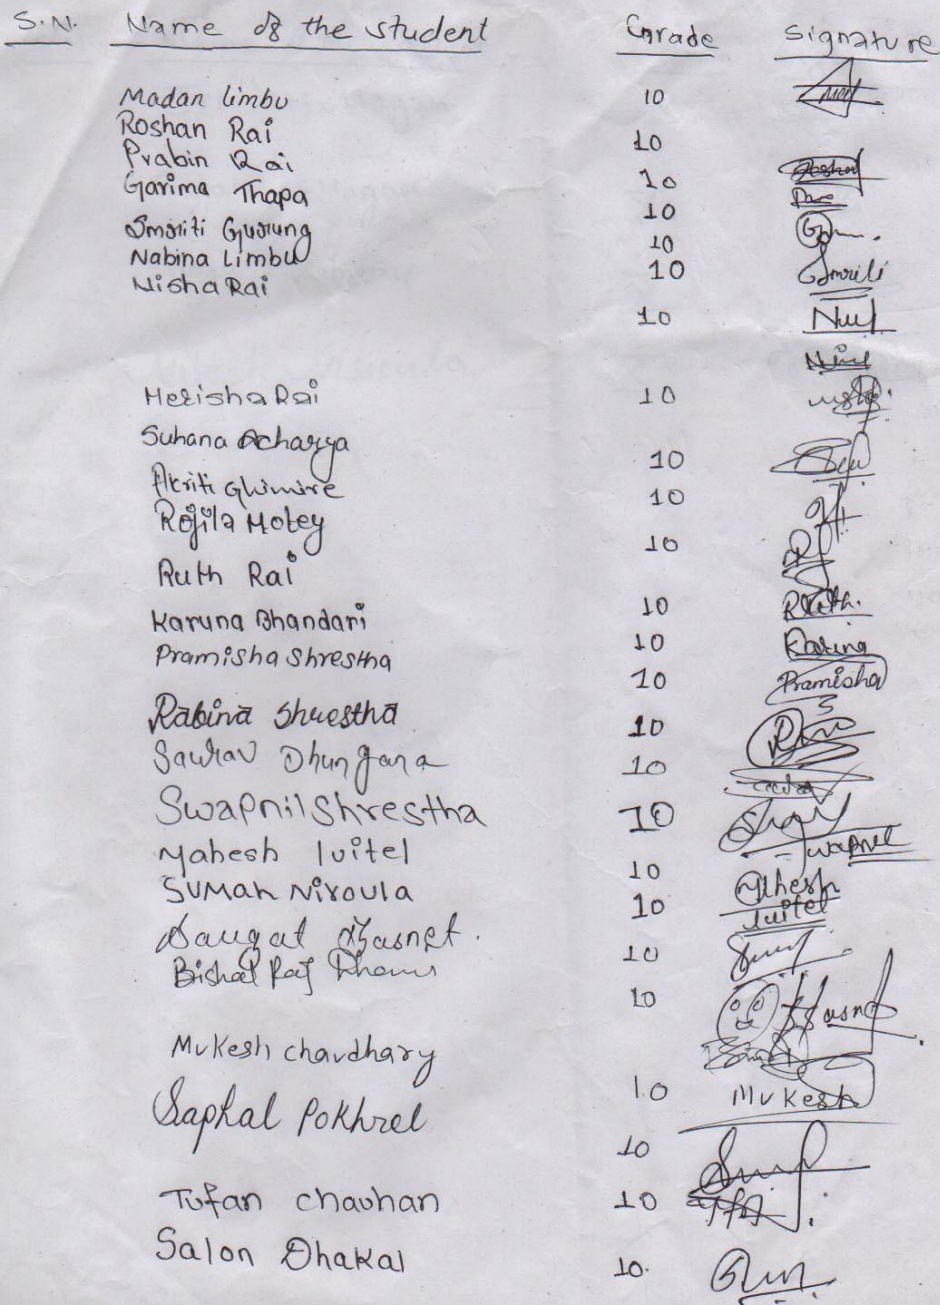 S.N. Name of the student Grade Signature
Madan limbu 10
Roshan Rai 10
Prabin Rai 10
Garima Thapa 10
Smriti Gurung 10 Smriti
Nabina Limbu 10
Nisha Rai 10
Merisha Rai 10
Suhana Acharya 10
Akriti Ghimire 10
Rojila Motey 10
Ruth Rai 10 Ruth.
Karuna Bhandari 10 Karuna
Pramisha Shrestha 10 Pramisha
Rabina Shrestha 10
Saurav Dhungana 10
Swapnil Shrestha 10 Swapnil
Mahesh luitel 10 Mahesh luitel
Suman Niroula 10
Saugat Basnet. 10
Bishal Raj 10
Mukesh chaudhary 10 Mukesh
Saphal Pokhrel 10
Tufan chauhan 10
Salon Dhakal 10.